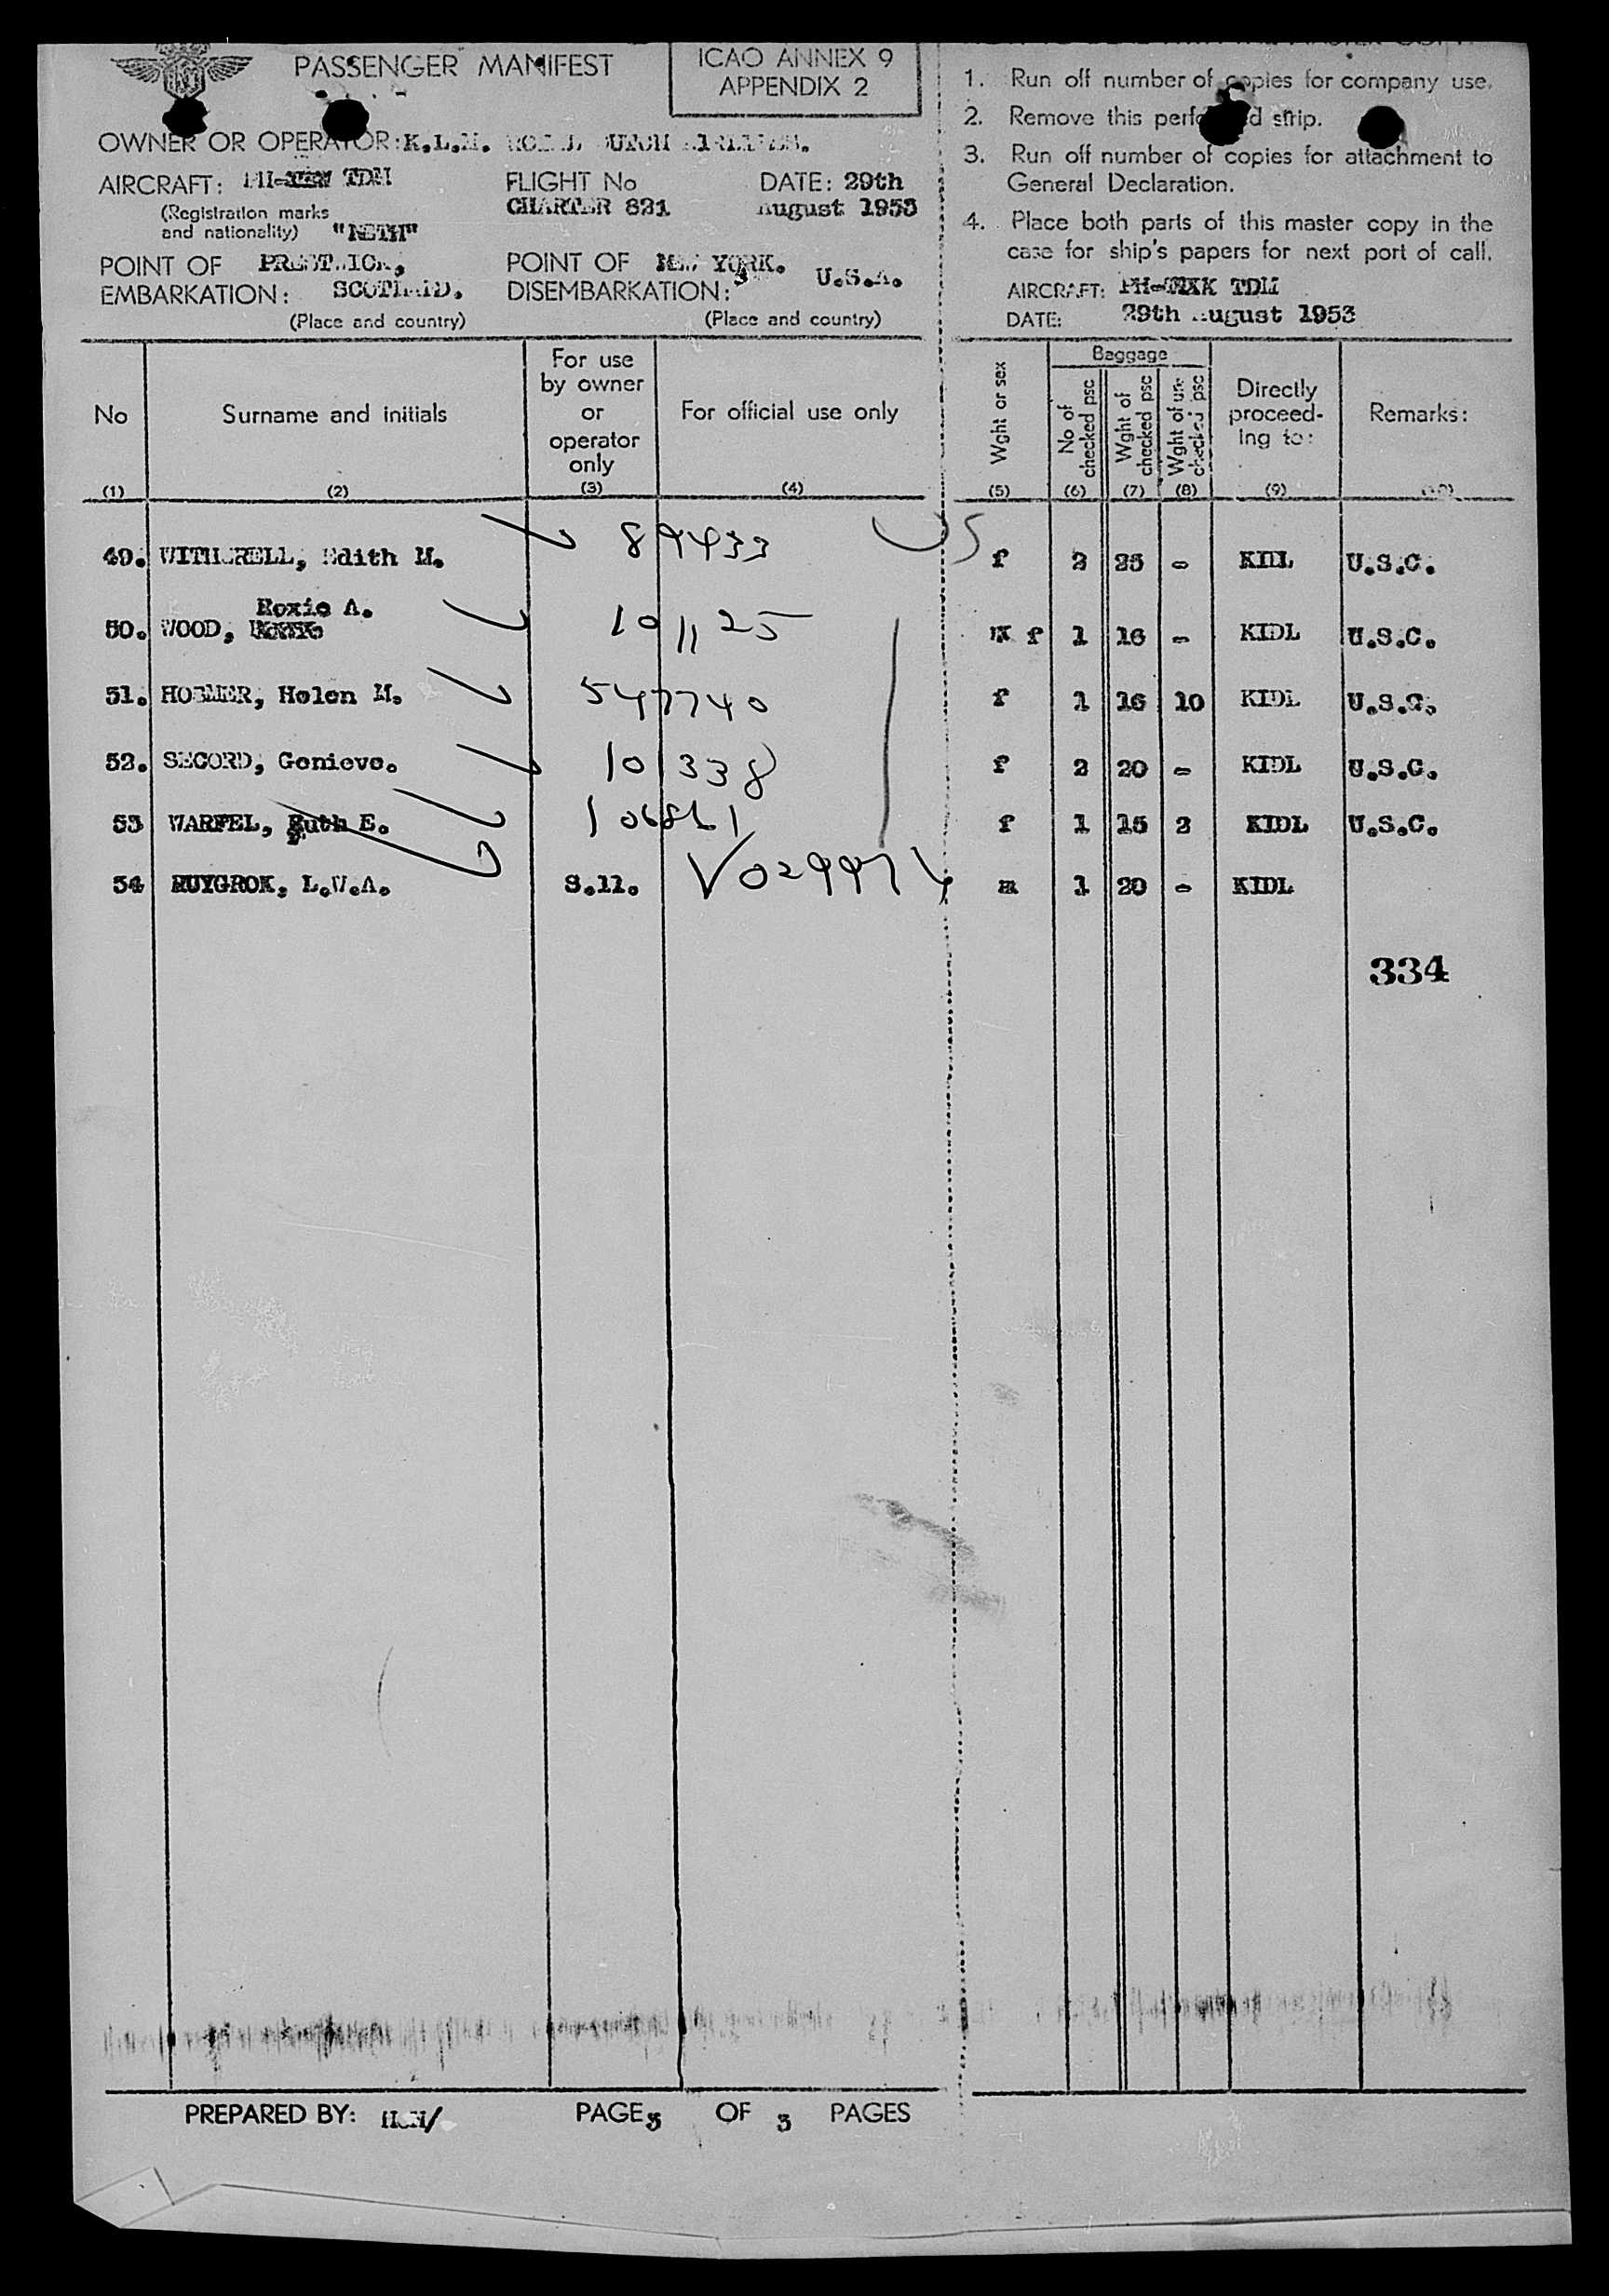 PASSENGER MANIFEST
ICAO ANNEX 9
APPENDIX 2
OWNER OR OPERATOR: K.L.M. DUTCH AIRLINES.
AIRCRAFT: TDM
(Registration marks
and nationality) "NETH"
FLIGHT No
CHARTER 821
DATE: 29th
August 1953
POINT OF PRESTWICK,
EMBARKATION: SCOTLAND.
(Place and country)
POINT OF NEW YORK.
DISEMBARKATION: U.S.A.
(Place and country)
1. Run off number of copies for company use.
2. Remove this perforated strip.
3. Run off number of copies for attachment to
General Declaration.
4. Place both parts of this master copy in the
case for ship's papers for next port of call.
AIRCRAFT: TDM
DATE: 29th August 1953
No
(1)
Surname and initials
(2)
For use
by owner
or
operator
only
(3)
For official use only
(4)
Wght or sex
(5)
Baggage
No of
checked psc
(6)
Wght of
checked psc
(7)
Wght of un-
checked psc
(8)
Directly
proceed-
ing to:
(9)
Remarks:
(10)
US
49. WITHERELL, Edith M. 89433 f 2 25 - U.S.C.
Roxie A.
50. WOOD, 101125 f 1 16 - KIDL U.S.C.
51. Helen M. 547740 f 1 16 10 KIDL U.S.C.
52. SECORD, Genieve. 101338 f 2 20 - KIDL U.S.C.
53 WARFEL, Ruth E. f 1 15 2 KIDL U.S.C.
54 RUYGROK, L.W.A. S.11. m 1 20 - KIDL
334
PREPARED BY:
PAGE 3 OF 3 PAGES